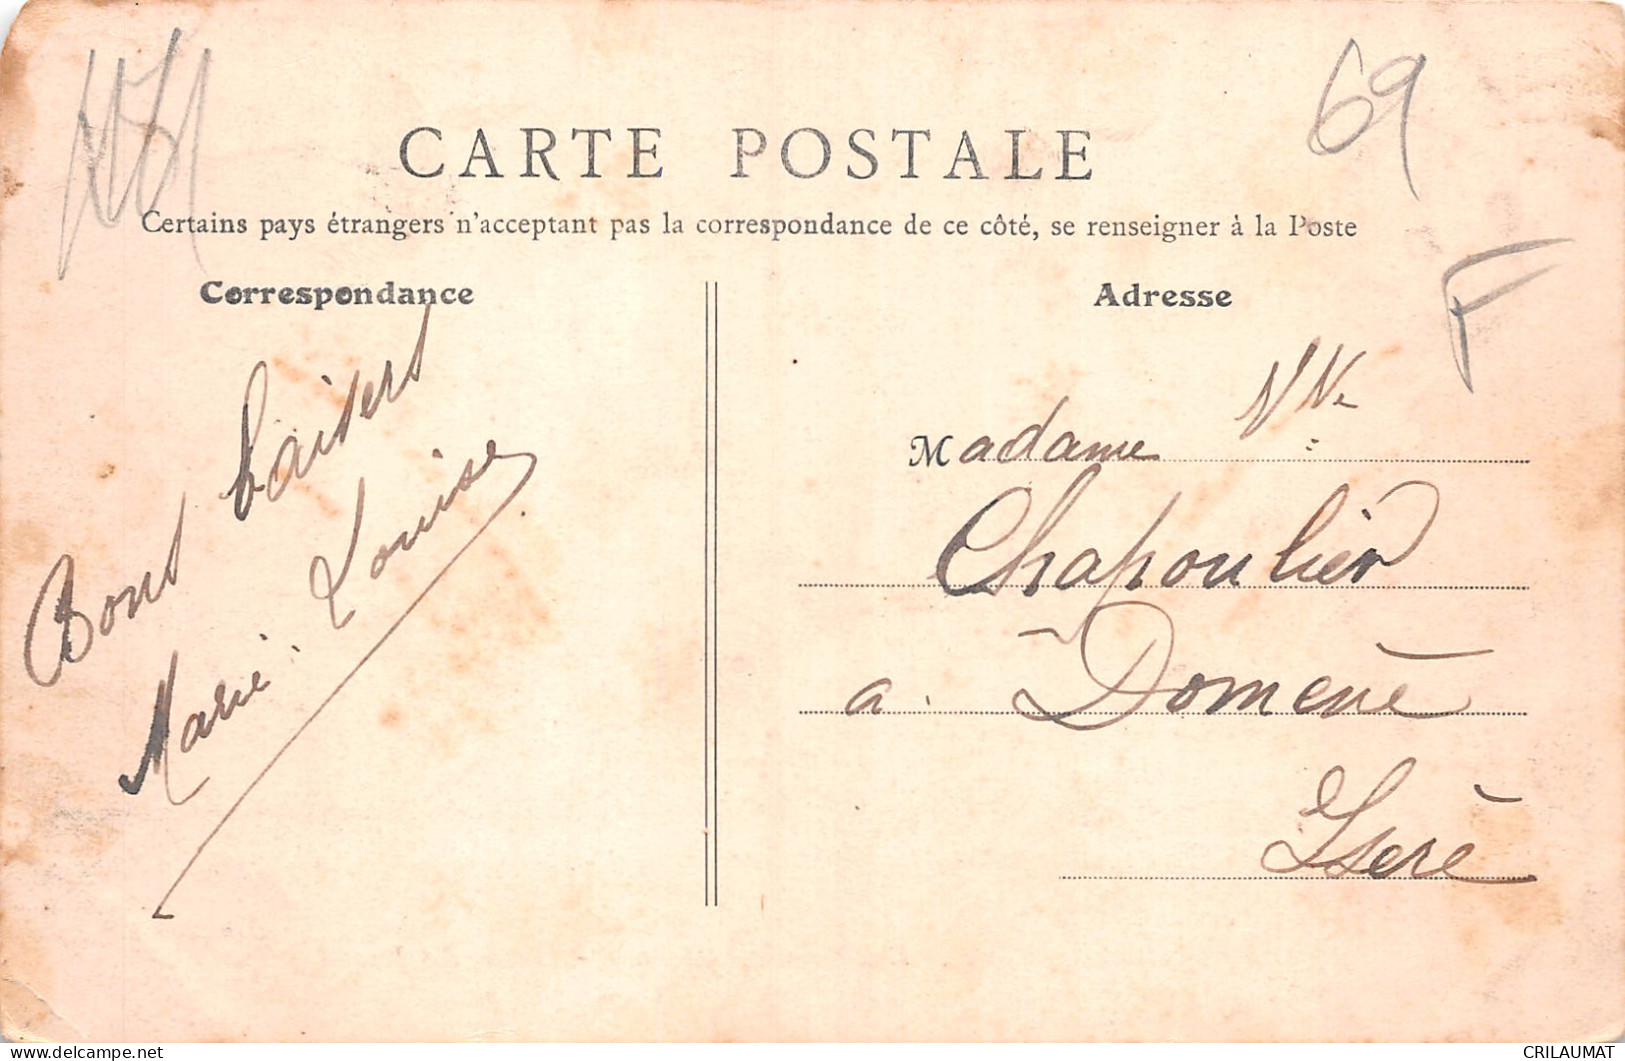 69
CARTE POSTALE
Certains pays étrangers n'acceptent pas la correspondance de ce côté, se renseigner à la Poste
Correspondance
Bons baisers
Marie. Louise
Adresse
F
Madame Vve
Chapoulier
a. Domène
Isère
delcampe.net
CRILAUMAT